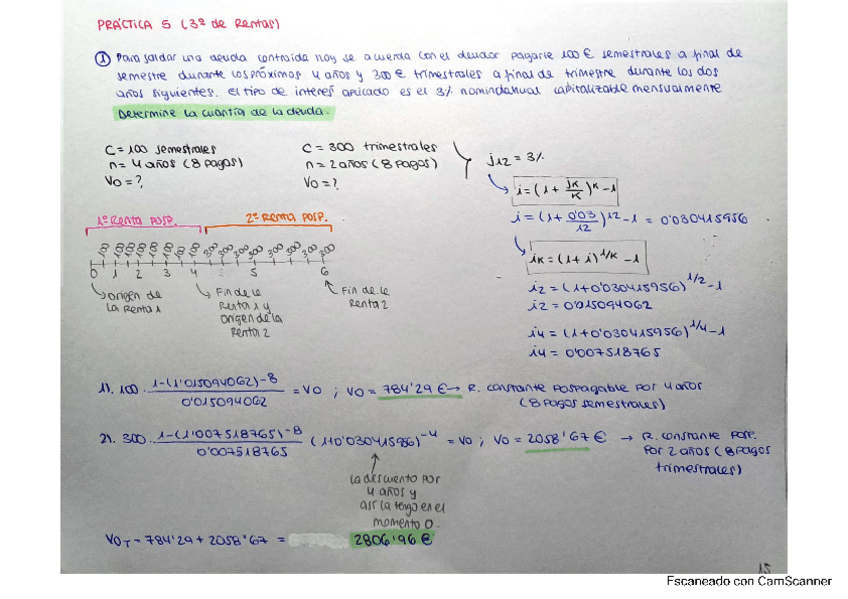 PRÁCTICA 5 (3ª de Rentas)
① Para saldar una deuda contraída hoy se acuerda con el deudor pagarle 100€ semestrales a final de
semestre durante los próximos 4 años y 300€ trimestrales a final de trimestre durante los dos
años siguientes. El tipo de interés aplicado es el 3% nominal anual capitalizable mensualmente
Determine la cuantía de la deuda.
C = 100 semestrales
n = 4 años (8 pagos)
V0 = ?
C = 300 trimestrales
n = 2 años (8 pagos)
V0 = ?
j12 = 3%
i = (1 + jk/k)^k - 1
i = (1 + 0'03/12)^12 - 1 = 0'030415956
ik = (1 + i)^1/k - 1
i2 = (1+0'030415956)^1/2 - 1
i2 = 0'015094062
i4 = (1+0'030415956)^1/4 - 1
i4 = 0'007518765
1ª Renta posp.
2ª Renta posp.
100 100 100 100 100 100 100 100 300 300 300 300 300 300 300 300
0 1 2 3 4 5 6
Origen de
la Renta 1
Fin de le
Renta 1 y
origen de la
Renta 2
Fin de le
Renta 2
1). 100 · 1-(1'015094062)^-8 / 0'015094062 = V0 ; V0 = 784'29 € → R. constante pospagable por 4 años
(8 pagos semestrales)
2). 300 · 1-(1'007518765)^-8 / 0'007518765 (1+0'030415956)^-4 = V0 ; V0 = 2058'67 € → R. constante posp.
por 2 años (8 pagos
trimestrales)
La descuento por
4 años y
así la tengo en el
momento 0.
V0T = 784'29 + 2058'67 = 2806'96 €
15
Escaneado con CamScanner